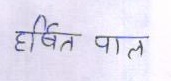 हर्षित पाल